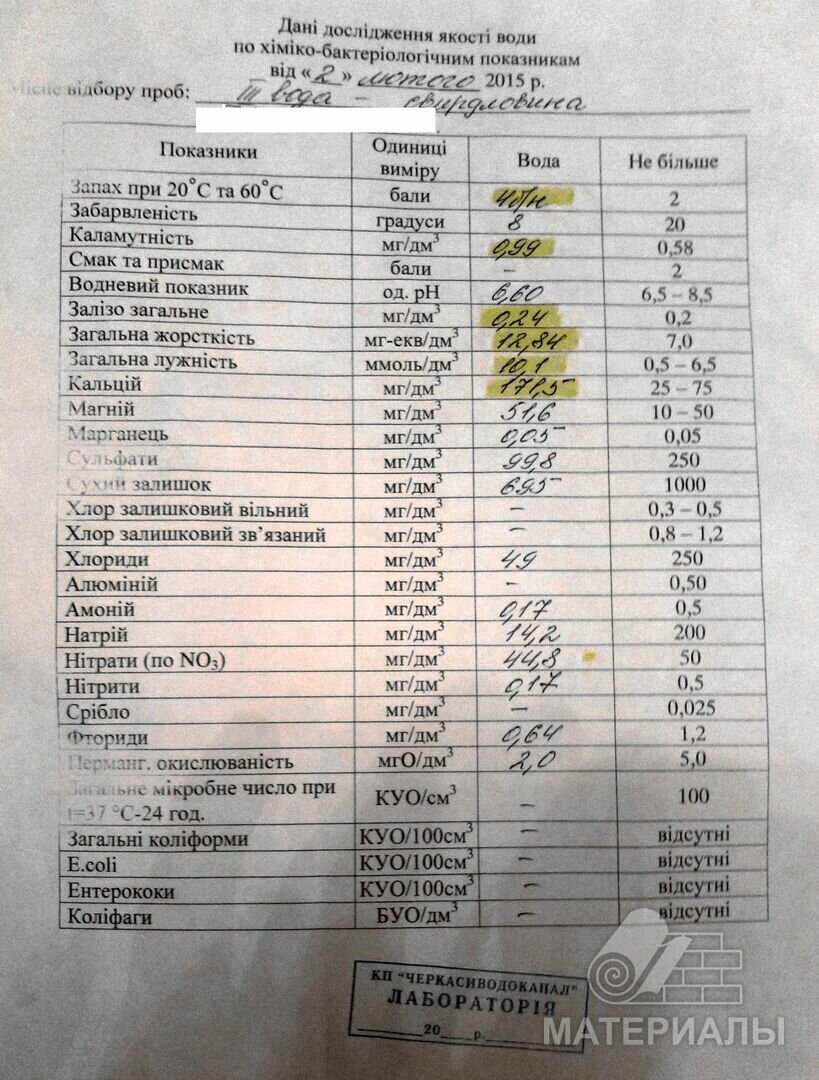 Дані дослідження якості води
по хіміко-бактеріологічним показникам
від « 2 » лютого 2015 р.
Місце відбору проб: III вода – свердловина
Показники Одиниці виміру Вода Не більше
Запах при 20°С та 60°С бали 4б/н 2
Забарвленість градуси 8 20
Каламутність мг/дм³ 0,99 0,58
Смак та присмак бали – 2
Водневий показник од. рН 6,60 6,5 – 8,5
Залізо загальне мг/дм³ 0,24 0,2
Загальна жорсткість мг-екв/дм³ 12,84 7,0
Загальна лужність ммоль/дм³ 10,1 0,5 – 6,5
Кальцій мг/дм³ 171,5 25 – 75
Магній мг/дм³ 51,6 10 – 50
Марганець мг/дм³ 0,05 0,05
Сульфати мг/дм³ 99,8 250
Сухий залишок мг/дм³ 695 1000
Хлор залишковий вільний мг/дм³ – 0,3 – 0,5
Хлор залишковий зв’язаний мг/дм³ – 0,8 – 1,2
Хлориди мг/дм³ 49 250
Алюміній мг/дм³ – 0,50
Амоній мг/дм³ 0,17 0,5
Натрій мг/дм³ 14,2 200
Нітрати (по NO₃) мг/дм³ 44,8 50
Нітрити мг/дм³ 0,17 0,5
Срібло мг/дм³ – 0,025
Фториди мг/дм³ 0,64 1,2
Перманг. окислюваність мгО/дм³ 2,0 5,0
Загальне мікробне число при
t=37 °С-24 год. КУО/см³ – 100
Загальні коліформи КУО/100см³ – відсутні
E.coli КУО/100см³ – відсутні
Ентерококи КУО/100см³ – відсутні
Коліфаги БУО/дм³ – відсутні
КП "ЧЕРКАСИВОДОКАНАЛ"
ЛАБОРАТОРІЯ
20 р.
МАТЕРИАЛЫ